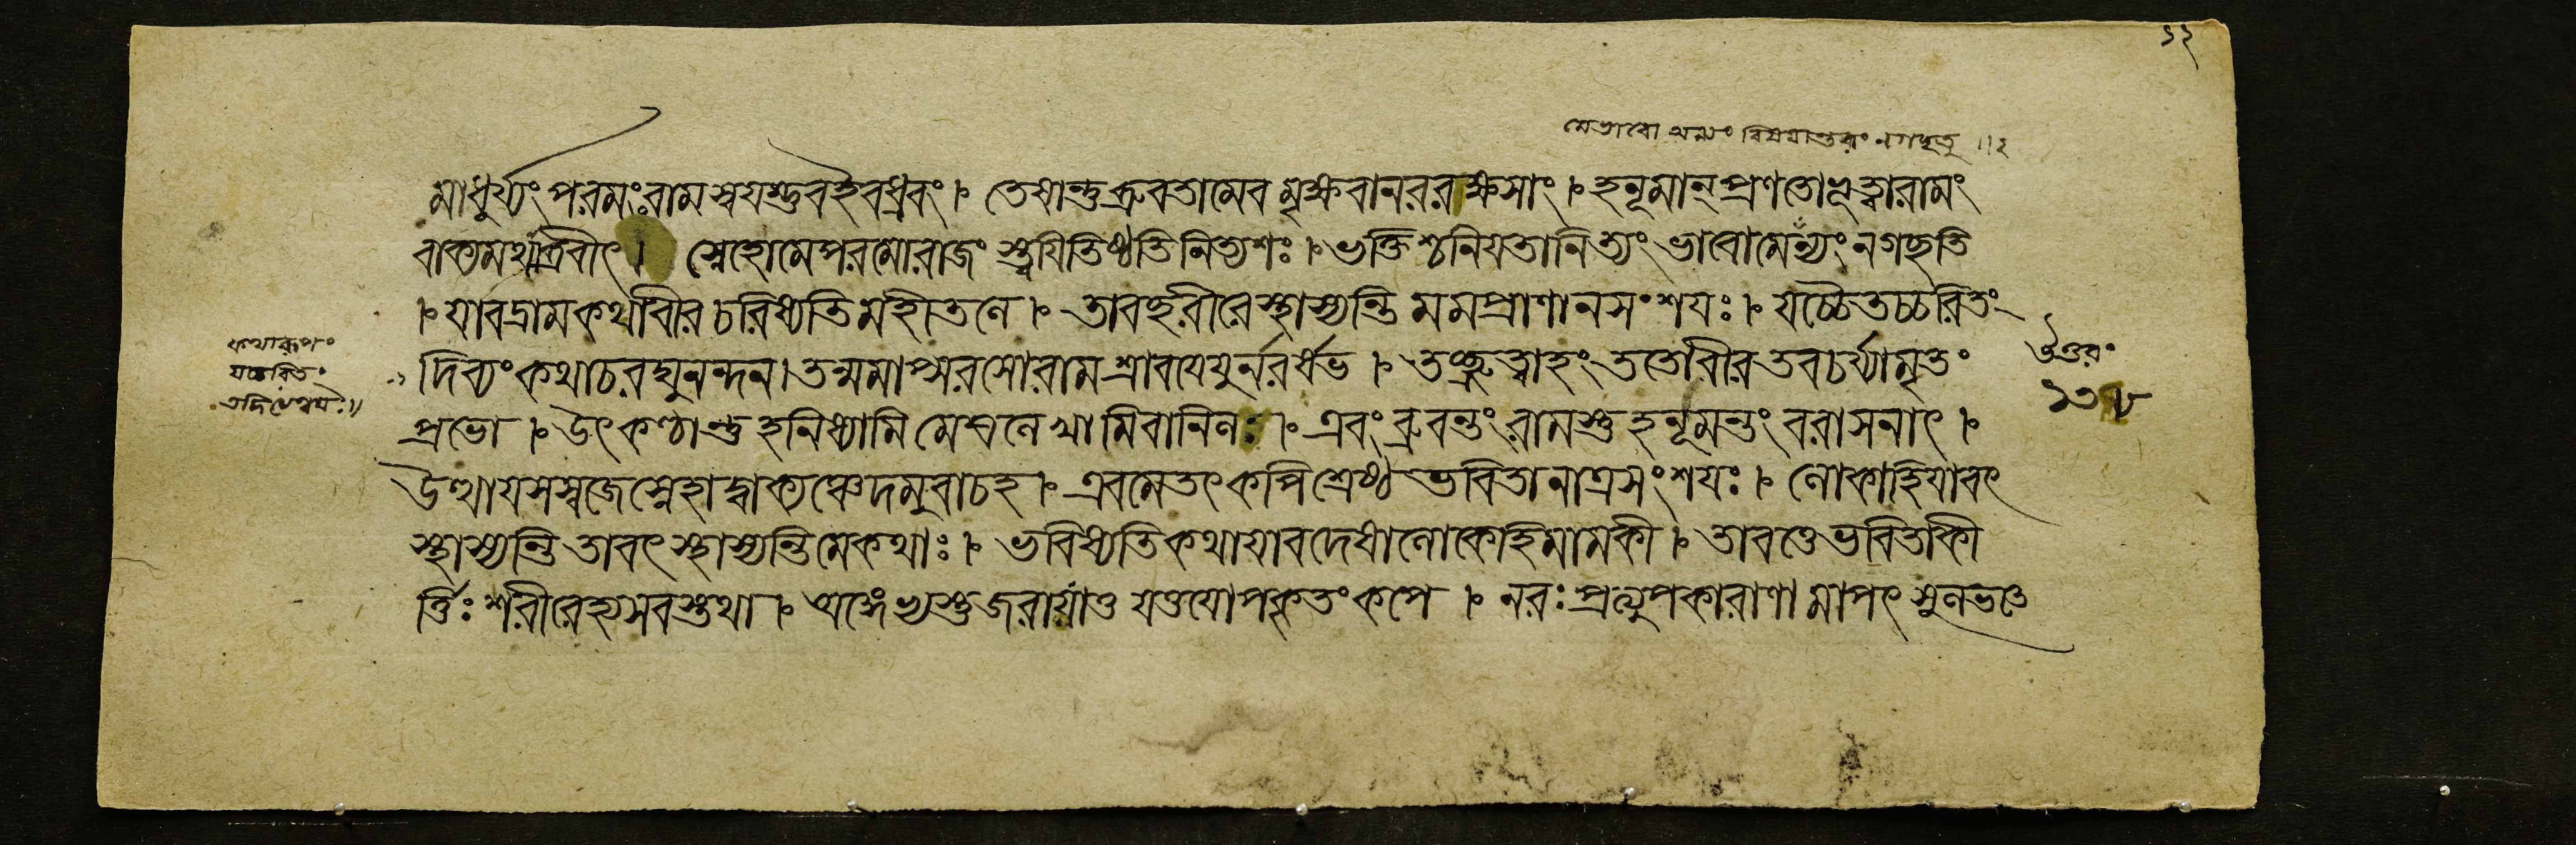 ১২
মেভাবো অন্যং বিষয়ান্তরং নগচ্ছতু ॥ ২
মাধুর্য্যং পরমং রামস্বযম্ভুবইবধ্রুবং । তেষান্তুব্রুবতামেবমৃক্ষবানররক্ষসাং । হনূমান্ প্রণতোভূত্বারামং
বাক্যমথাব্রবীৎ । স্নেহোমেপরমোরাজং স্ত্বযিতিষ্ঠতিনিত্যশঃ । ভক্তিশ্চনিযতানিত্যং ভাবোমেন্যং নগচ্ছতি
। যাবদ্রামকথাবীর চরিষ্যতিমহীতলে । তাবচ্ছরীরেস্থাস্যন্তি মমপ্রাণানসংশযঃ । যচ্চৈতচ্চরিতং
দিব্যং কথাচরঘুনন্দন । তন্মমাপ্সরসোরাম শ্রাবযেযুর্নরর্ষভ । তচ্ছ্রুত্বাহং ততোবীর তবচর্য্যামৃতং
প্রভো । উৎকণ্ঠান্তু হনিষ্যামি মেঘলেখামিবানিলঃ । এবং ব্রুবন্তং রামস্তু হনূমন্তং বরাসনাৎ ।
উত্থাযসস্বজেস্নেহাদ্বাক্যঞ্চেদমুবাচহ । এবমেতৎ কপিশ্রেষ্ঠ ভবিতানাত্রসংশযঃ । লোকাহিযাবৎ
স্থাস্যন্তি তাবৎ স্থাস্যন্তিমেকথাঃ । ভবিষ্যতিকথাযাবদেষালোকেহিমামকী । তাবত্তেভবিতাকী
র্ত্তিঃ শরীরেহ্যসবস্তথা । অঙ্গেষ্বস্তুজরাযাতু যত্ত্বযোপকৃতং কপে । নরঃ প্রত্যুপকারাণামাপৎসুলভতে
কথারূপং
যচ্চরিতং
তদিত্যন্বয়ঃ ॥
উত্তরং
১৩৮